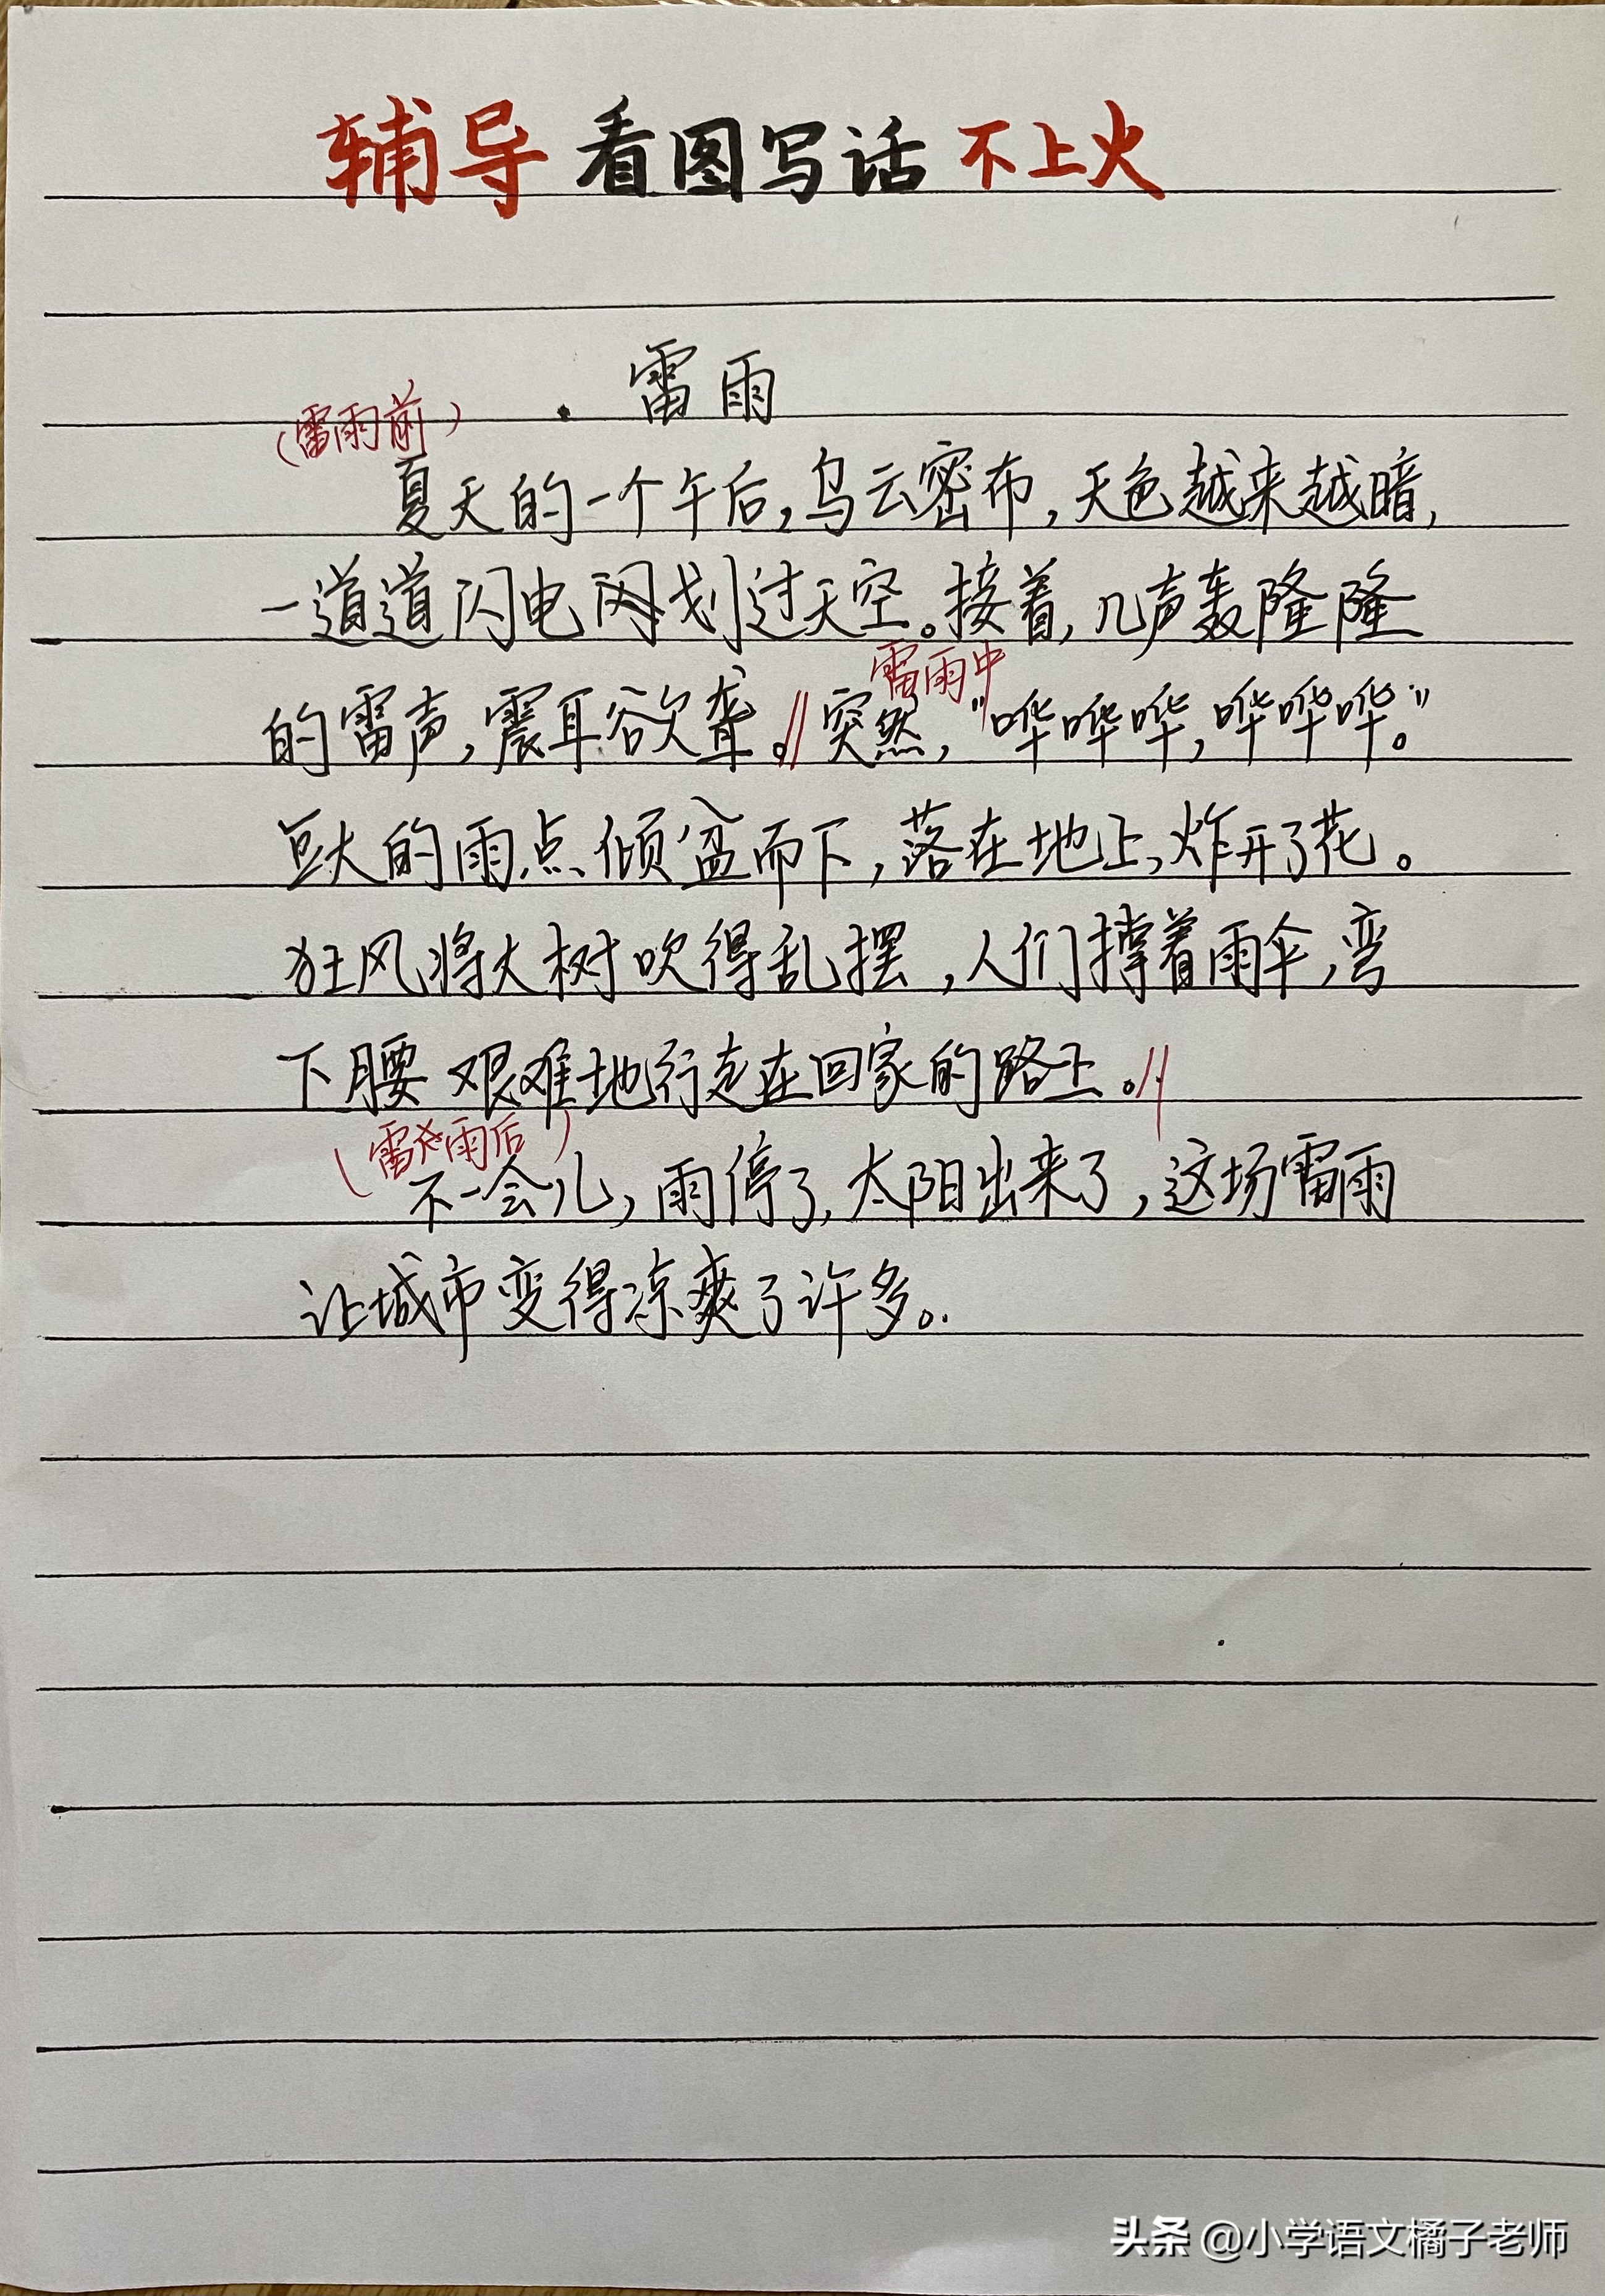 辅导看图写话不上火
雷雨
(雷雨前)
夏天的一个午后,乌云密布,天色越来越暗,
一道道闪电划过天空。接着,几声轰隆隆
雷雨中
的雷声,震耳欲聋。//突然,"哗哗哗,哗哗哗。"
巨大的雨点倾盆而下,落在地上,炸开了花。
狂风将大树吹得乱摆,人们撑着雨伞,弯
下腰艰难地行走在回家的路上。//
(雷雨后)
不一会儿,雨停了,太阳出来了,这场雷雨
让城市变得凉爽了许多。
头条 @小学语文橘子老师